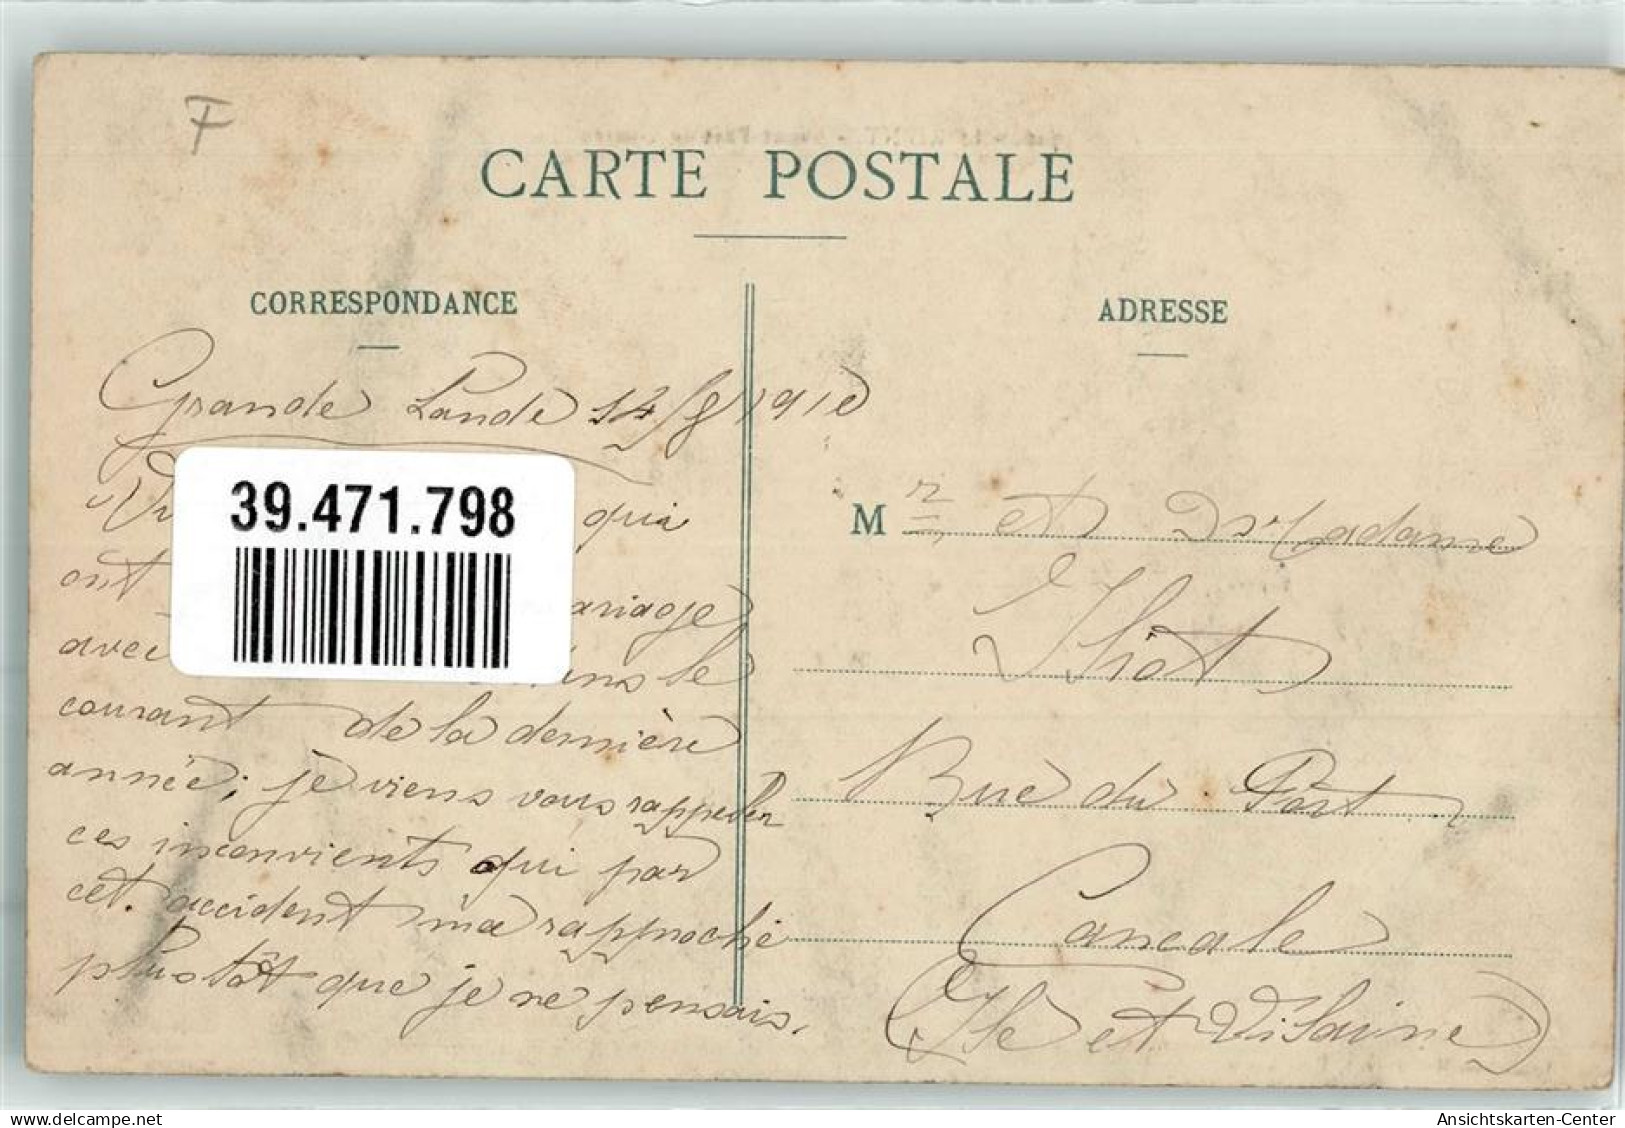 F
CARTE POSTALE
CORRESPONDANCE
Grande Lande 14/8/1910
qui
ont ariage
avec ans le
courant de la dernière
année; je viens vous rappeler
ces inconvients qui par
cet. accident ma rapproché
plustôt que je ne pensais.
39.471.798
ADRESSE
M r et Madame
Rue du Port
Cancale
(Ile et Vilaine)
Ansichtskarten-Center
delcampe.net